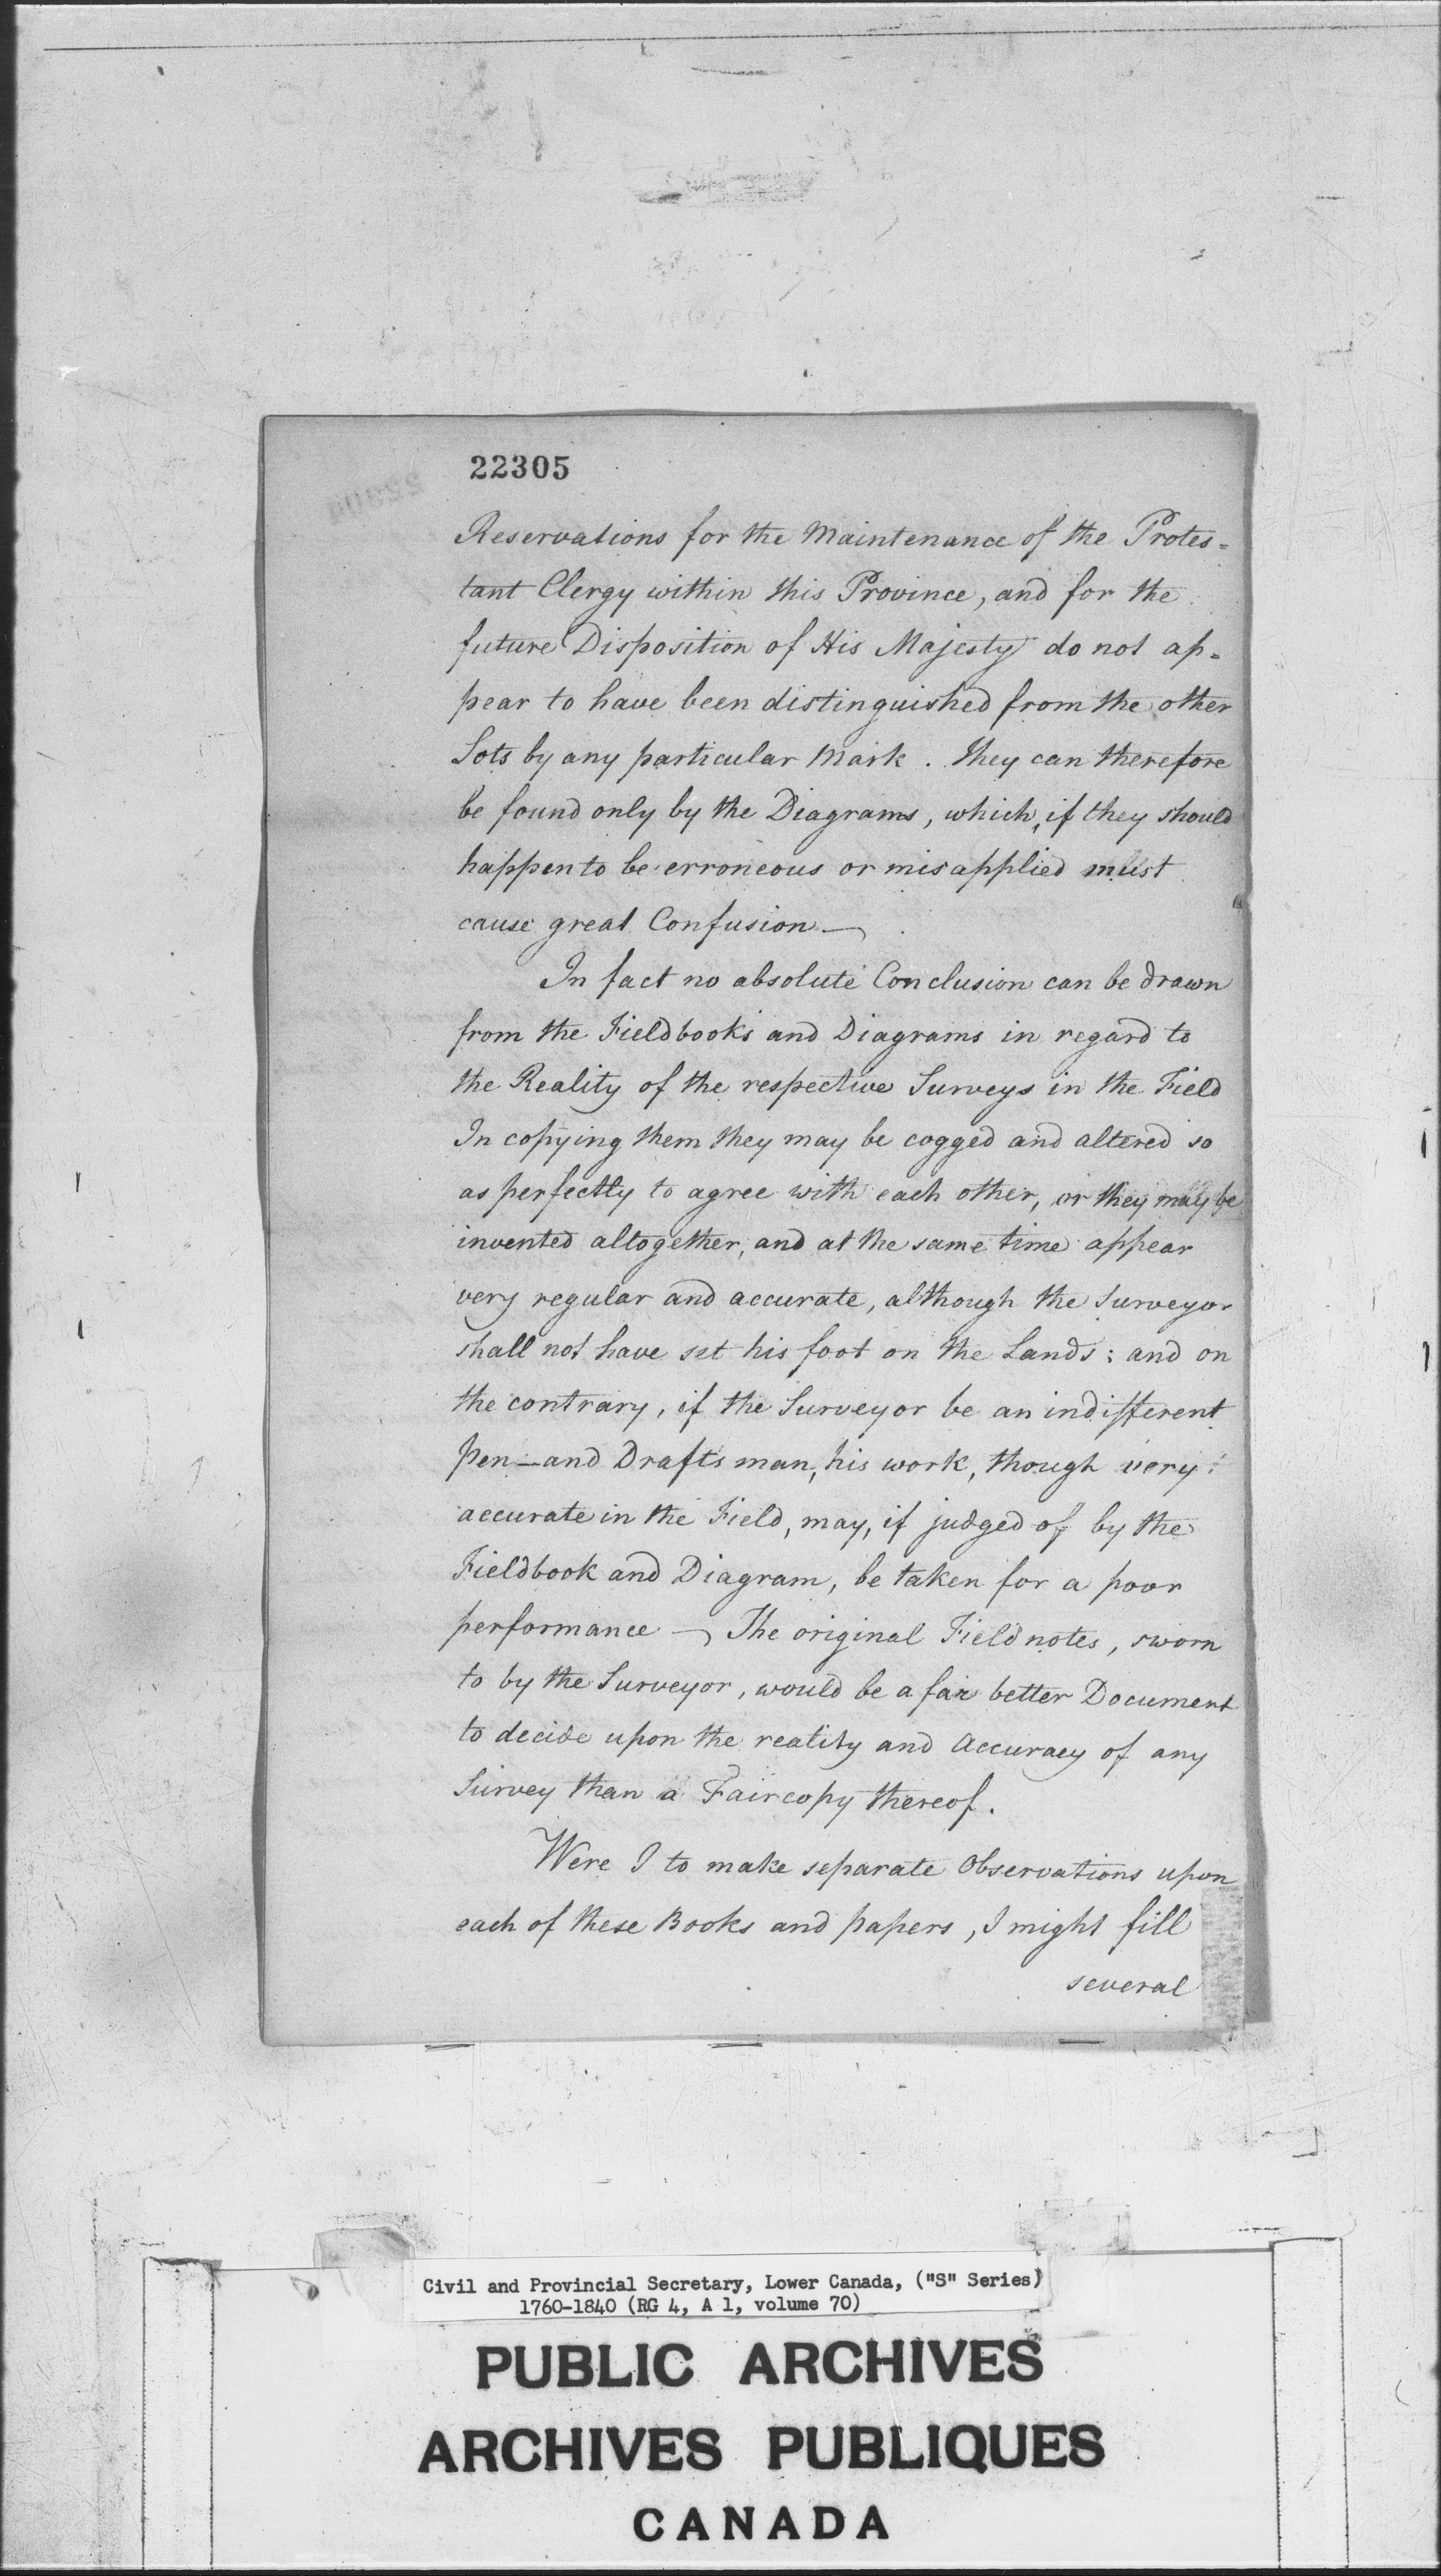 22305
Reservations for the Maintenance of the Protes=
tant Clergy within this Province, and for the
future Disposition of His Majesty do not ap=
pear to have been distinguished from the other
Lots by any particular Mark. They can therefore
be found only by the Diagrams, which, if they should
happen to be erroneous or misapplied must
cause great Confusion —
In fact no absolute Conclusion can be drawn
from the Fieldbooks and Diagrams in regard to
the Reality of the respective Surveys in the Field
In copying them they may be cogged and altered so
as perfectly to agree with each other, or they may be
invented altogether, and at the same time appear
very regular and accurate, although the Surveyor
shall not have set his foot on the Lands: and on
the contrary, if the Surveyor be an indifferent
pen—and Draftsman, his work, though very
accurate in the Field, may, if judged of by the
Fieldbook and Diagram, be taken for a poor
performance — The original Fieldnotes, sworn
to by the Surveyor, would be a far better Document
to decide upon the reality and Accuracy of any
Survey than a Faircopy thereof.
Were I to make separate Observations upon
each of these Books and papers, I might fill
several
Civil and Provincial Secretary, Lower Canada, ("S" Series)
1760-1840 (RG 4, A 1, volume 70)
PUBLIC ARCHIVES
ARCHIVES PUBLIQUES
CANADA